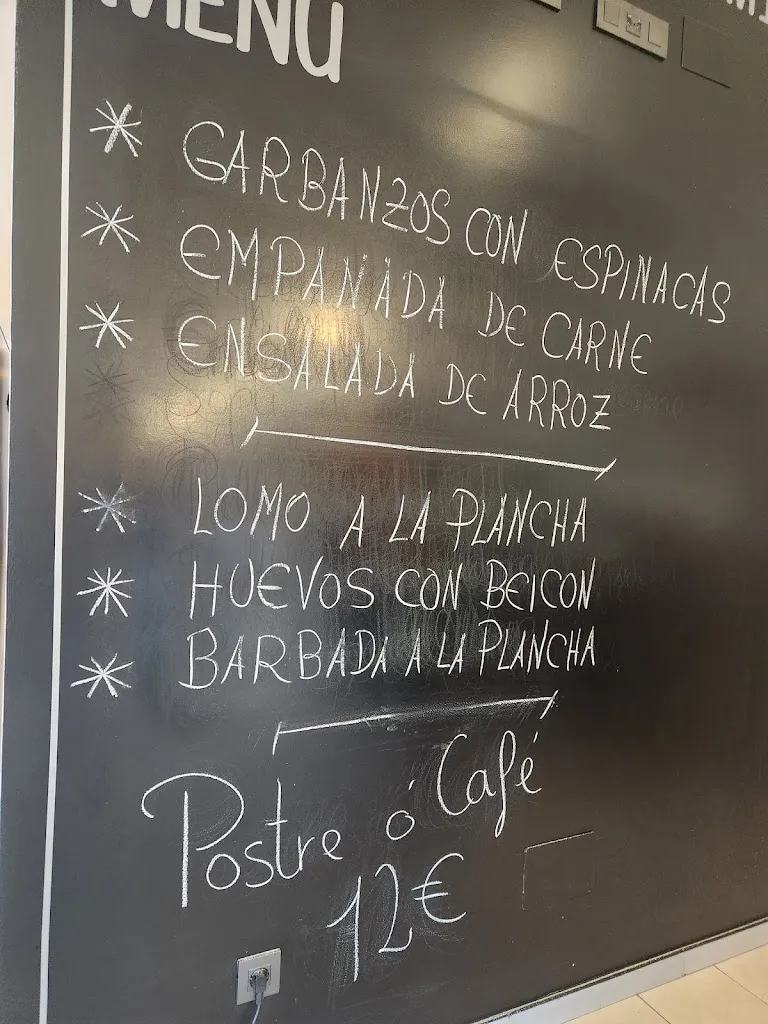 MENÚ
* GARBANZOS CON ESPINACAS
* EMPANADA DE CARNE
* ENSALADA DE ARROZ
* LOMO A LA PLANCHA
* HUEVOS CON BEICON
* BARBADA A LA PLANCHA
Postre ó Café
12€